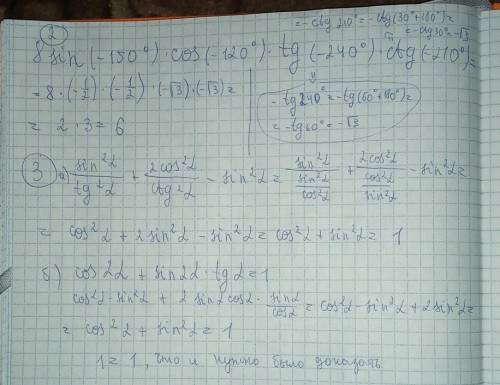 ② = -ctg 210° = -ctg(30°+180°) =
= -ctg 30° = -√3
8 sin(-150°)·cos(-120°)·tg(-240°)·ctg(-210°) =
= 8·(-1/2)·(-1/2)·(-√3)·(-√3) =
= 2·3 = 6
-tg 240° = -tg(60°+180°) =
= -tg 60° = -√3
③ а) sin²α/tg²α + 2cos²α/ctg²α - sin²α = sin²α/(sin²α/cos²α) + 2cos²α/(cos²α/sin²α) - sin²α =
= cos²α + 2sin²α - sin²α = cos²α + sin²α = 1
б) cos2α + sin2α·tgα = 1
cos²α - sin²α + 2 sinα cosα · sinα/cosα = cos²α - sin²α + 2sin²α =
= cos²α + sin²α = 1
1 = 1, что и нужно было доказать